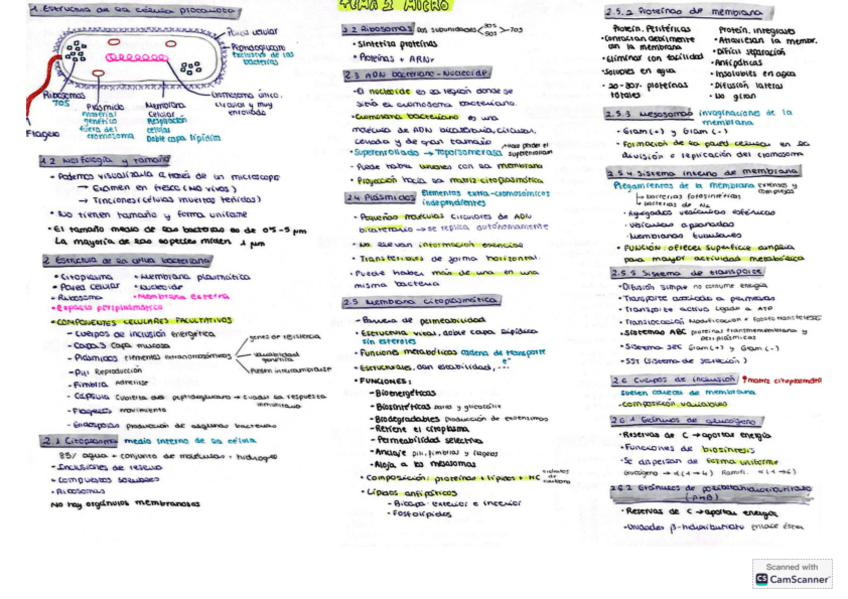 TEMA 2 MICRO
1. Estructura de la célula procariota
Pared celular
Peptidoglucano
exclusivo de las
bacterias
Ribosomas
70S
Plásmido
material
genético
fuera del
cromosoma
Membrana
celular
Respiración
celular
Doble capa lipídica
Cromosoma único,
circular y muy
enrollado
Flagelo
1.2 Morfología y tamaño
- Podemos visualizarla a través de un microscopio
→ Examen en fresco (No vivos)
→ Tinciones (células muertas teñidas)
• No tienen tamaño y forma uniforme
• El tamaño medio de las bacterias es de 0'5-5 μm
La mayoría de las especies miden 1 μm
2 Estructura de la célula bacteriana
• Citoplasma • Membrana plasmática
• Pared celular • Nucleoide
• Ribosoma • Membrana externa
• Espacio periplasmático
• COMPONENTES CELULARES FACULTATIVOS
- Cuerpos de inclusión energética
- Capa S Capa mucosa
- Plásmidos elementos extracromosómicos
genes de resistencia
variabilidad
genética
- Pili Reproducción
- Fimbria Adherirse
- Capsula Cubierta del peptidoglucano → evadir la respuesta
inmunitaria
- Flagelos movimiento
- Endosporas producción de algunas bacterias
2.1 Citoplasma medio interno de la célula
85% agua + conjunto de moléculas + hidrógeno
- Inclusiones de reserva
- Compuestos solubles
- Ribosomas
No hay orgánulos membranosos
2.2 Ribosomas Dos subunidades 30S 50S > 70S
• Sintetiza proteínas
• Proteínas + ARNr
2.3 ADN bacteriano - Nucleoide
- El nucleoide es la región donde se
sitúa el cromosoma bacteriano.
- Cromosoma bacteriano es una
molécula de ADN bicatenaria, circular,
cerrada y de gran tamaño
• Superenrollado → Topoisomerasa
- Puede haber uniones con la membrana
- Proyección hacia la matriz citoplasmática
2.4 Plásmidos Elementos extra-cromosómicos
independientes
- Pequeñas moléculas circulares de ADN
bicatenario → se replica autónomamente
- No llevan información esencial
- Transferirlos de forma horizontal.
- Puede haber más de uno en una
misma bacteria
2.5 Membrana citoplasmática
- Barrera de permeabilidad
- Estructura vital, doble capa lipídica
sin esteroles
- Funciones metabólicas cadena de transporte
- Estructurales, dan estabilidad, ...
• FUNCIONES:
- Bioenergéticas
- Biosintéticas
- Biodegradables producción de exoenzimas
- Retiene el citoplasma
- Permeabilidad selectiva
- Anclaje pili, fimbrias y flagelos
- Aloja a los mesosomas
• Composición: proteínas + lípidos + HC
hidratos
de
carbono
• Lípidos anfipáticos
- Bicapa: exterior e interior
- Fosfolípidos
2.5.2 Proteínas de membrana
Protein. Periféricas Protein. integrales
• Contactan débilmente • Atraviesan la membr.
con la membrana • Difícil separación
• Eliminar con facilidad • Anfipáticas
• Solubles en agua • Insolubles en agua
• 20-30% proteínas • Difusión lateral
totales • No giran
2.5.3 Mesosomas invaginaciones de la
membrana
- Gram (+) y Gram (-)
- Formación de la pared celular en la
división e replicación del cromosoma
2.5.4 Sistema interno de membrana
Plegamientos de la membrana extensos y
complejos
↳ bacterias fotosintéticas
↳ bacterias de N₂
- Agregados vesículas esféricas
- Vesículas aplanadas
- Membranas tubulares
• FUNCIÓN: ofrecer superficie amplia
para mayor actividad metabólica
2.5.5 Sistema de transporte
- Difusión simple no consume energía
- Transporte asociado a permeasas
- Transporte activo ligado a ATP
- Translocación Modificación + fosfotransferasas
- Sistemas ABC proteínas transmembrana y
periplásmicas
- Sistema SEC Gram (+) y Gram (-)
- SST (Sistema de secreción)
2.6 Cuerpos de inclusión matriz citoplasmática
Suelen carecer de membrana
- composición variables
2.6.1 Gránulos de glucógeno
- Reservas de C → aportar energía
- Funciones de biosíntesis
- Se dispersan de forma uniforme
2.6.2 Gránulos de polibetahidroxibutirato
(-PHB)
• Reservas de C → aportar energía
- Unidades β-hidroxibutirato enlace éster
Scanned with
CS CamScanner